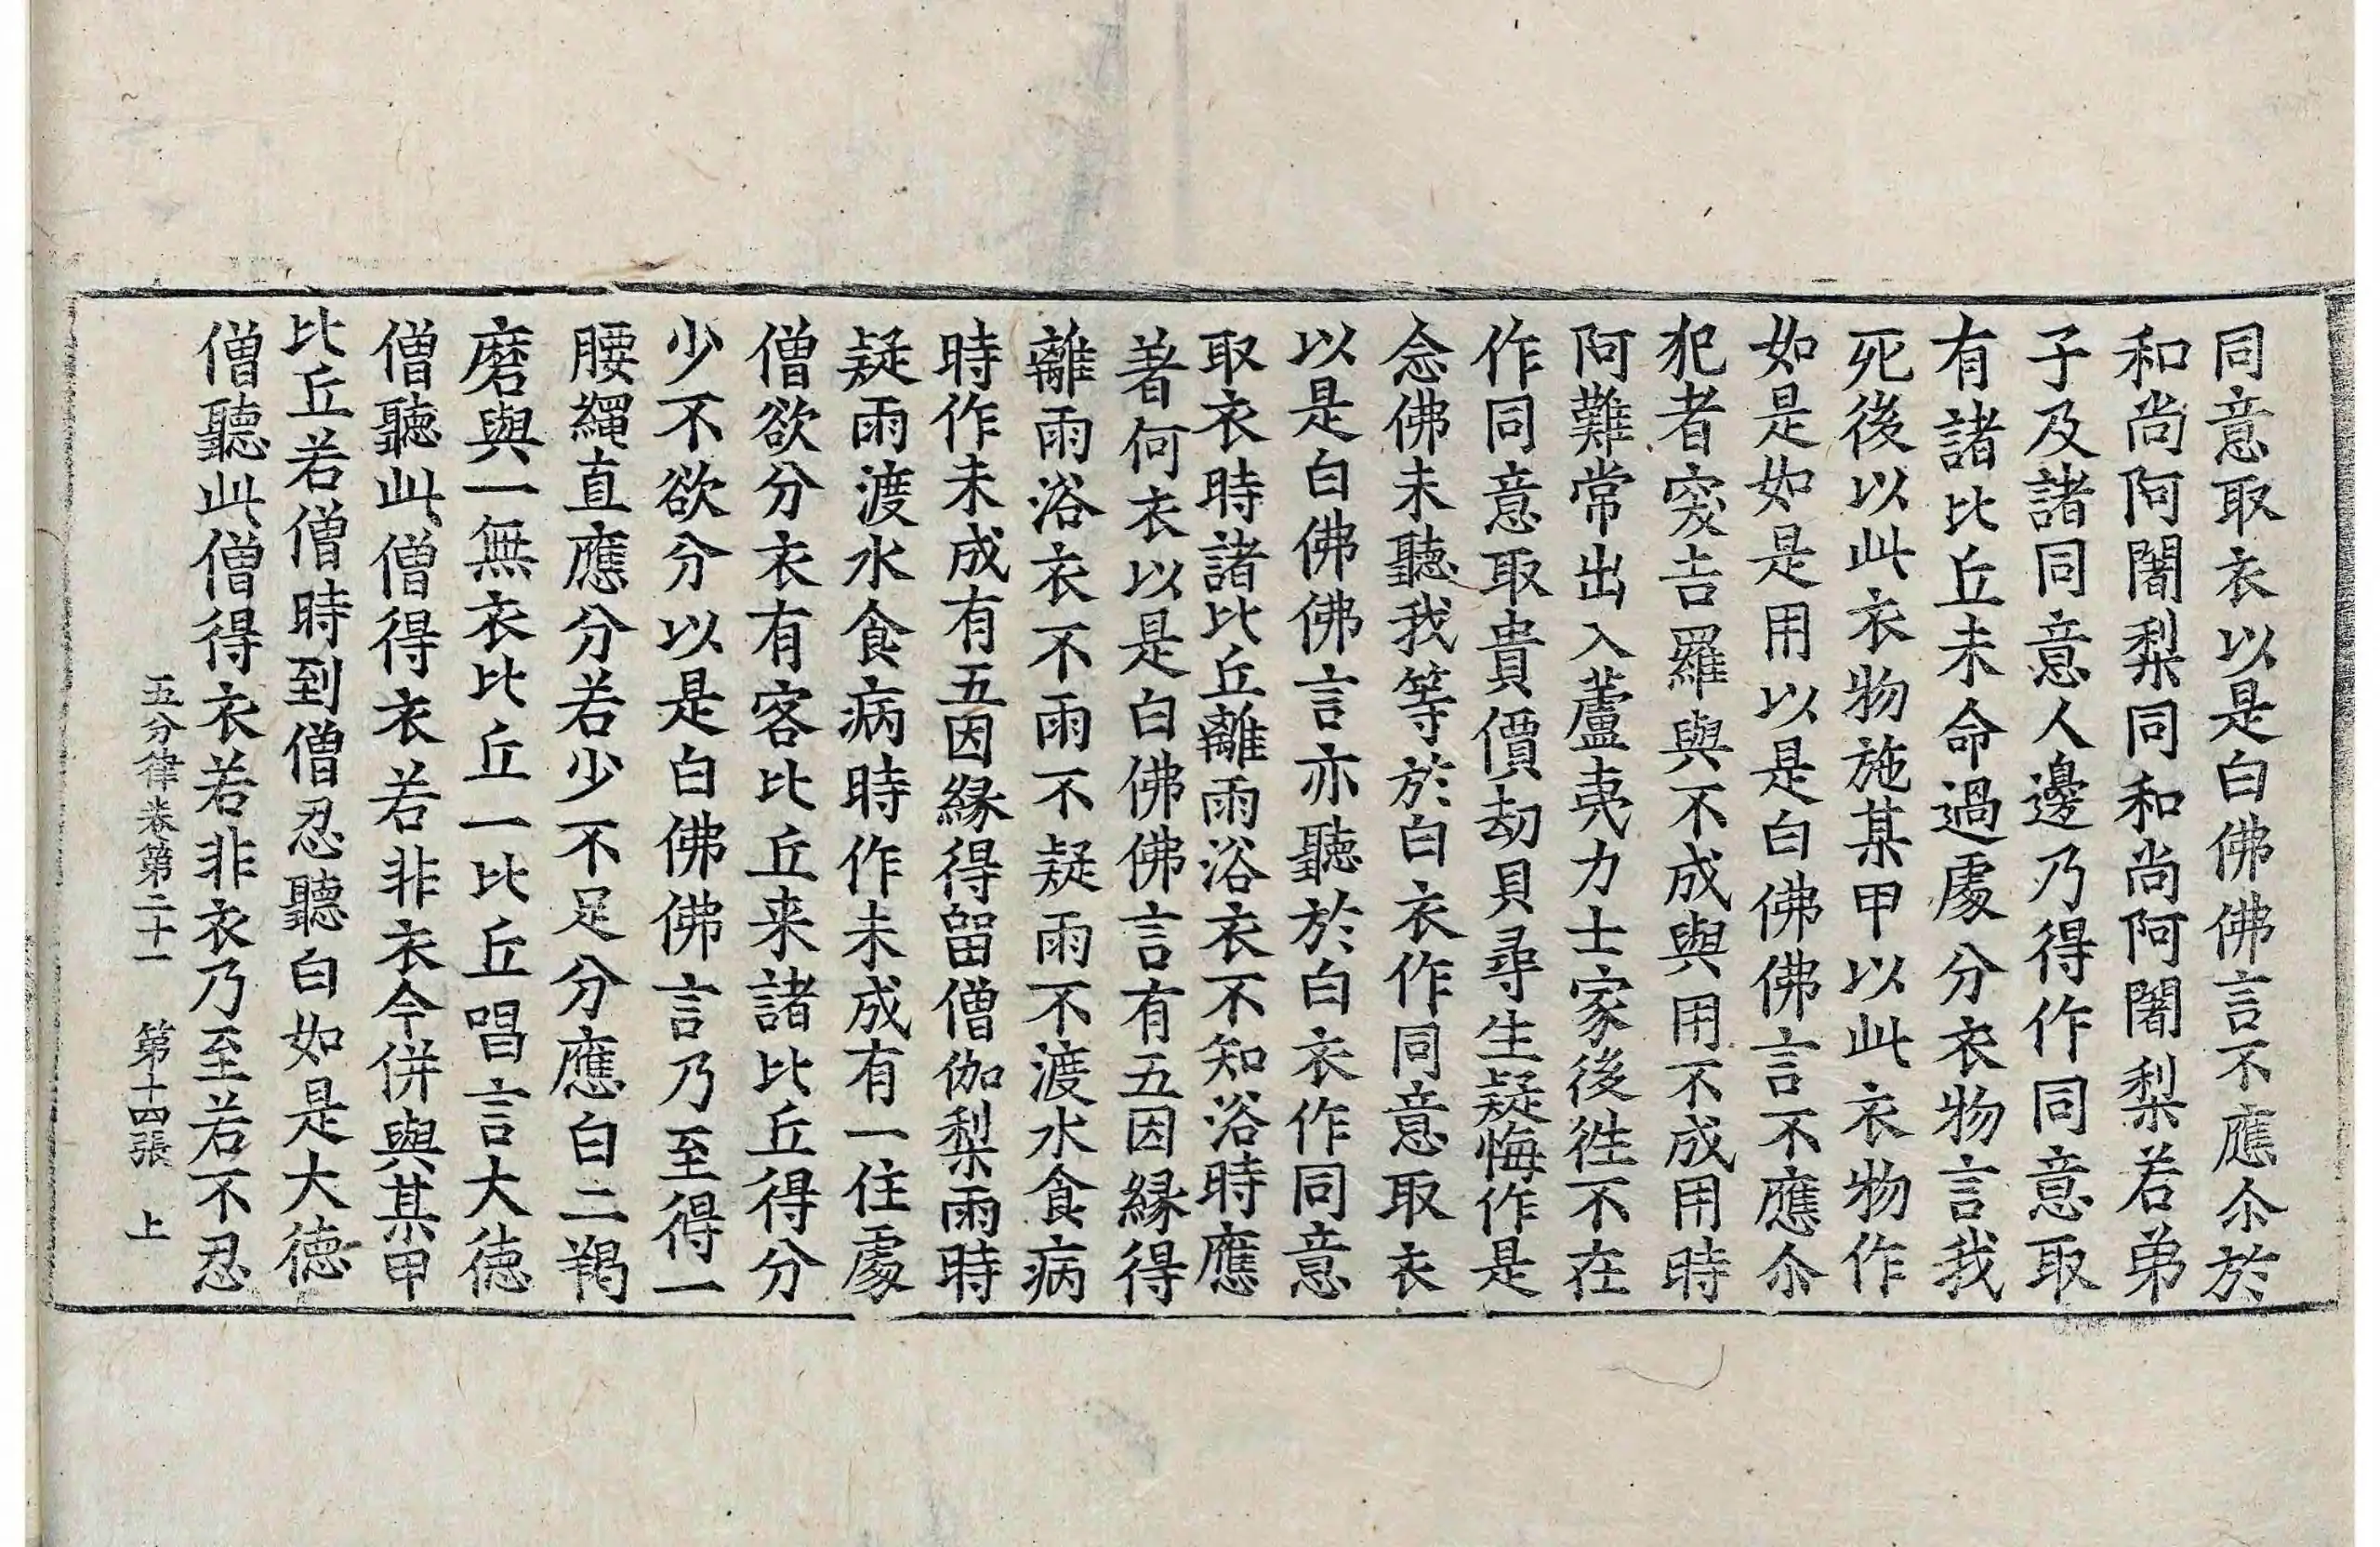 同意取衣以是白佛佛言不應尒於
和尚阿闍梨同和尚阿闍梨若弟
子及諸同意人邊乃得作同意取
有諸比丘未命過處分衣物言我
死後以此衣物施某甲以此衣物作
如是如是用以是白佛佛言不應尒
犯者突吉羅與不成與用不成用時
阿難常出入蘆夷力士家後往不在
作同意取貴價劫貝尋生疑悔作是
念佛未聽我等於白衣作同意取衣
以是白佛佛言亦聽於白衣作同意
取衣時諸比丘離雨浴衣不知浴時應
著何衣以是白佛佛言有五因緣得
離雨浴衣不雨不疑雨不渡水食病
時作未成有五因緣得留僧伽梨雨時
疑雨渡水食病時作未成有一住處
僧欲分衣有客比丘来諸比丘得分
少不欲分以是白佛佛言乃至得一
腰繩直應分若少不足分應白二羯
磨與一無衣比丘一比丘唱言大德
僧聽此僧得衣若非衣今併與某甲
比丘若僧時到僧忍聽白如是大德
僧聽此僧得衣若非衣乃至若不忍
五分律卷第二十一 第十四張 上